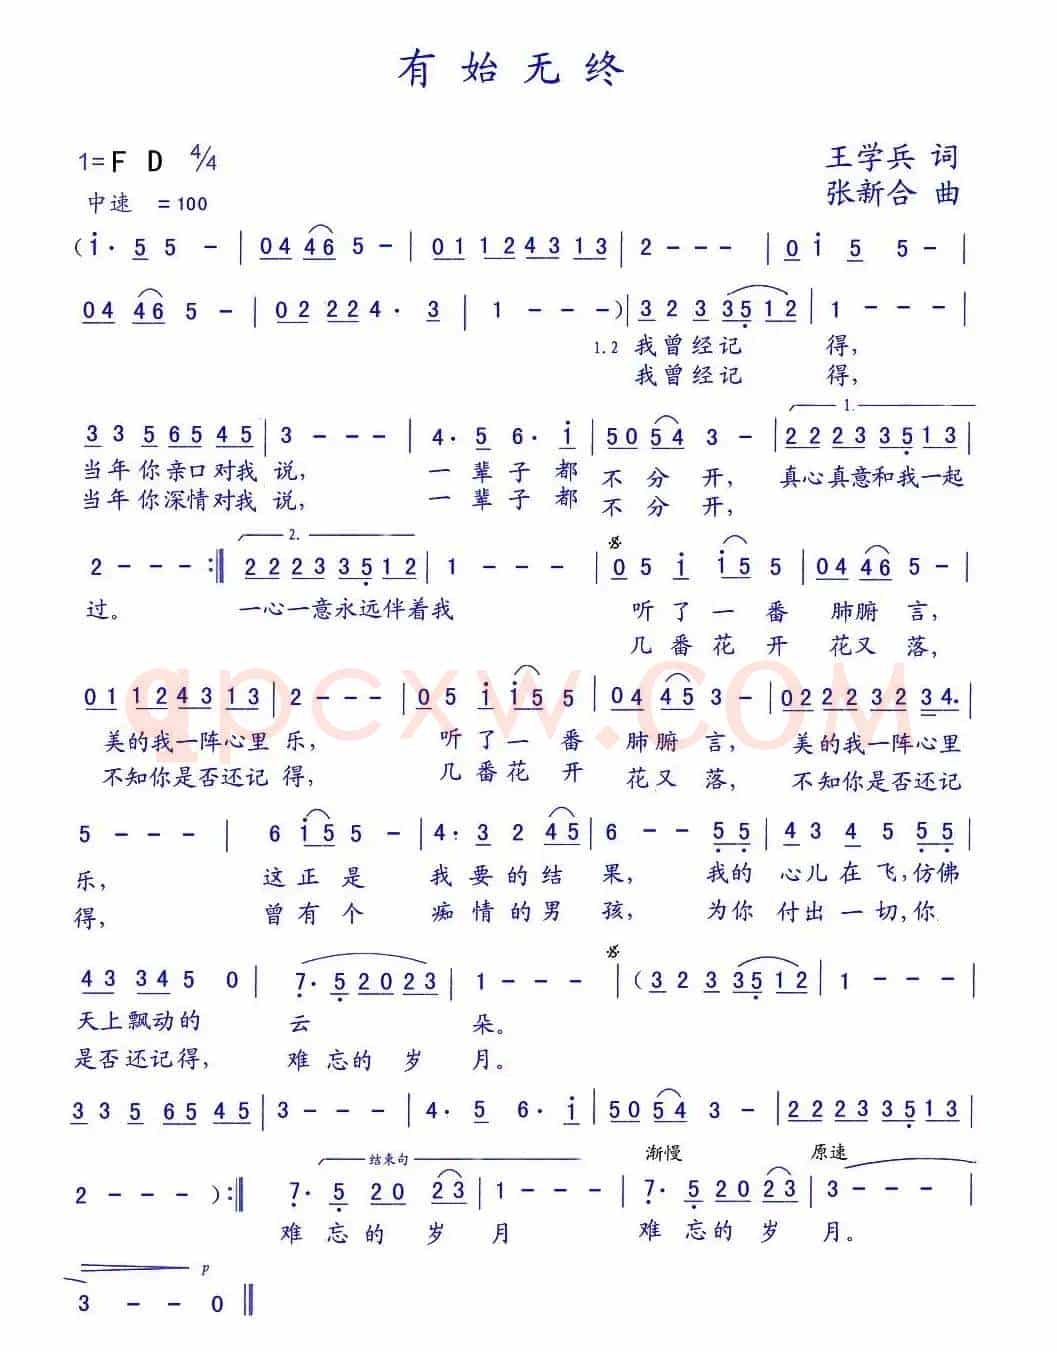 有始无终
1=F D 4/4
王学兵 词
中速 =100
张新合 曲
(i· 5 5 - | 04 46 5 - | 01 12 43 13 | 2 - - - | 0 i 5 5 - |
04 46 5 - | 02 22 4· 3 | 1 - - -)| 3 2 3 35 12 | 1 - - |
1.2 我曾经记 得,
我曾经记 得,
1.
3 3 5 65 45 | 3 - - - | 4· 5 6· i | 50 54 3 - | 22 23 35 13 |
当年你亲口对我 说, 一 辈子都 不 分 开, 真心真意和我一起
当年你深情对我 说, 一 辈子都 不 分 开,
2.
2 - - - :‖ 22 23 35 12 | 1 - - - | 0 5 i i5 5 | 04 46 5 - |
过。 一心一意永远伴着我 听了一番 肺腑言,
几番花开 花又落,
qpcxw.COM
01 12 43 13 | 2 - - - | 05 i i5 5 | 04 45 3 - | 02 22 32 34. |
美的我一阵心里 乐, 听了一番 肺腑 言, 美的我一阵心里
不知你是否还记 得, 几番花开 花又 落, 不知你是否还记
5 - - - | 6 i5 5 - | 4· 3 2 45 | 6 - - 55 | 43 4 5 55 |
乐, 这正是 我要的结 果, 我的 心儿在飞,仿佛
得, 曾有个 痴情的男 孩, 为你 付出一切,你
43 34 5 0 | 7· 5 20 23 | 1 - - - | (3 2 3 35 12 | 1 - - - |
天上飘动的 云 朵。
是否还记得, 难忘的岁 月。
3 3 5 65 45 | 3 - - - | 4· 5 6· i | 50 54 3 - | 22 23 35 13 |
结束句 渐慢 原速
2 - - - ):‖ 7· 5 20 23 | 1 - - - | 7· 5 20 23 | 3 - - - |
难忘的岁 月 难忘的岁 月。
p
3 - - 0 ‖